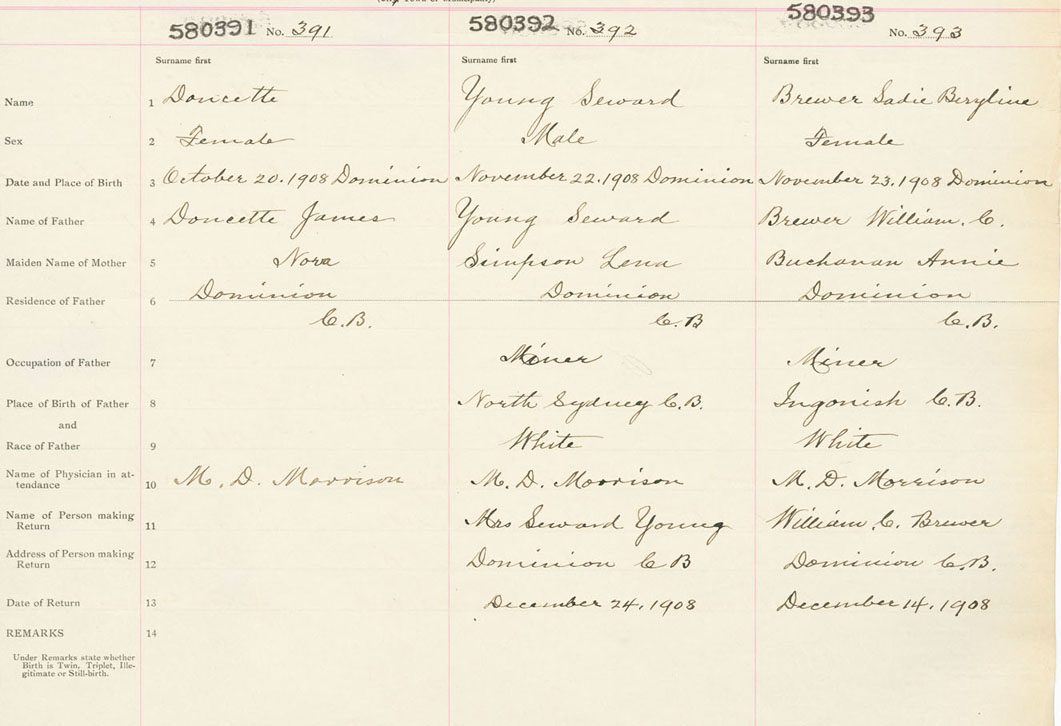 580391 No. 391 580392 No. 392 580393 No. 393
Surname first Surname first Surname first
Name 1 Doucette Young Seward Brewer Sadie Beryline
Sex 2 Female Male Female
Date and Place of Birth 3 October 20. 1908 Dominion November 22. 1908 Dominion November 23. 1908 Dominion
Name of Father 4 Doucette James Young Seward Brewer William. C.
Maiden Name of Mother 5 Nora Simpson Lena Buchanan Annie
Residence of Father 6 Dominion Dominion Dominion
C.B. C.B C.B.
Occupation of Father 7 Miner Miner
Place of Birth of Father 8 North Sydney C.B. Ingonish C.B.
and
Race of Father 9 White White
Name of Physician in at-
tendance 10 M. D. Morrison M. D. Morrison M. D. Morrison
Name of Person making
Return 11 Mrs Seward Young William C. Brewer
Address of Person making
Return 12 Dominion C B Dominion C.B.
Date of Return 13 December 24, 1908 December 14, 1908
REMARKS 14
Under Remarks state whether
Birth is Twin, Triplet, Ille-
gitimate or Still-birth.